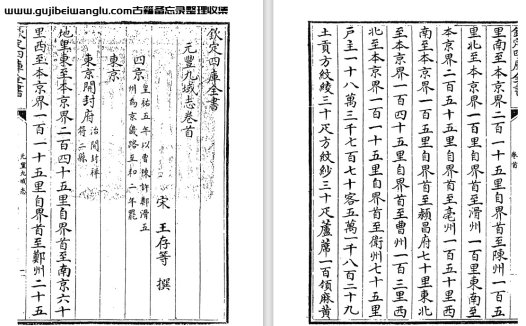 www.gujibeiwanglu.com古籍备忘录整理收集
欽定四庫全書
元豐九域志卷首
宋 王存等 撰
四京 皇祐五年以曹陳許鄭滑五
州為京畿路至和二年罷
東京
東京開封府 治開封祥
符二縣
地里東至本京界二百四十五里自界首至南京六十
里西至本京界一百一十五里自界首至鄭州二十五
欽定四庫全書
元豐九域志
卷首
里南至本京界二百一十五里自界首至陳州一百五
里北至本京界一百五里自界首至滑州一百里東南至
本京界二百五十五里自界首至亳州一百五十里西
南至本京界一百五十五里自界首至潁昌府七十里東北
至本京界一百四十五里自界首至曹州一百三里西
北至本京界一百一十五里自界首至衛州七十五里
户主一十八萬三千七百七十客五萬一千八百二十九
土貢方紋綾三十疋方紋紗三十疋蘆蓆一百領麻黃